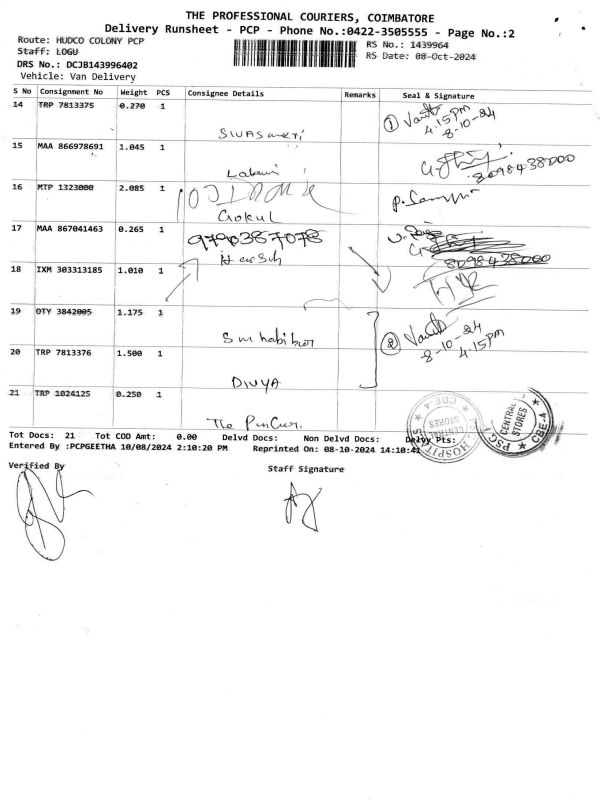 THE PROFESSIONAL COURIERS, COIMBATORE
Delivery Runsheet - PCP - Phone No.:0422-3505555 - Page No.:2
Route: HUDCO COLONY PCP
RS No.: 1439964
Staff: LOGU
RS Date: 08-Oct-2024
DRS No.: DCJB143996402
Vehicle: Van Delivery
S No Consignment No Weight PCS Consignee Details Remarks Seal & Signature
14 TRP 7813375 0.270 1
① 4.15pm
8-10-24
15 MAA 866978691 1.045 1
8098438000
16 MTP 1323000 2.085 1
Gokul
17 MAA 867041463 0.265 1
9790387078
Harsh
8098438000
18 IXM 303313185 1.010 1
19 OTY 3842005 1.175 1
② 8-10-24
4.15pm
20 TRP 7813376 1.500 1
DIVYA
21 TRP 1024125 0.250 1
CENTRAL STORES
CBE-4
HOSPITALS
PSG
CENTRAL STORES
CBE-4
Tot Docs: 21 Tot COD Amt: 0.00 Delvd Docs: Non Delvd Docs: Delvy Pts:
Entered By :PCPGEETHA 10/08/2024 2:10:20 PM Reprinted On: 08-10-2024 14:10:41
Verified By
Staff Signature